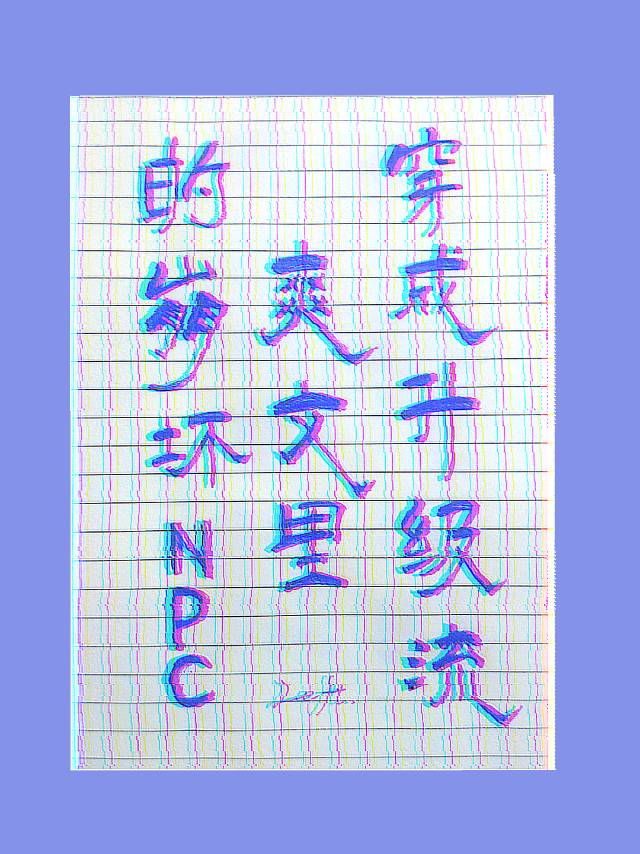 穿成升级流
爽文里
的崩坏NPC